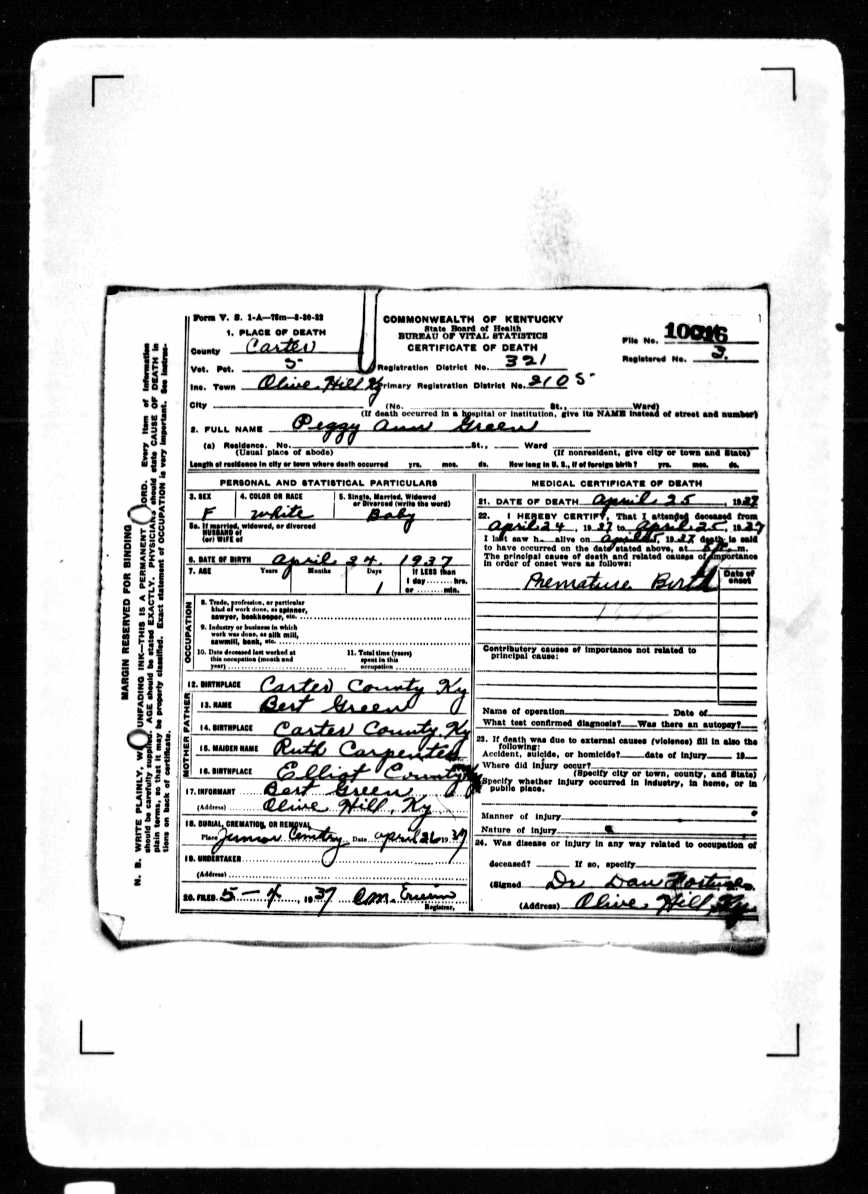 Form V. S. 1-A—75m—8-20-32
COMMONWEALTH OF KENTUCKY
State Board of Health
BUREAU OF VITAL STATISTICS
CERTIFICATE OF DEATH
File No.
Registered No. 3.
1. PLACE OF DEATH
County Carter
Vot. Pct. 5
Registration District No. 321
Inc. Town Olive Hill Ky
Primary Registration District No. 2105
City
(No. St., Ward)
(If death occurred in a hospital or institution, give its NAME instead of street and number)
2. FULL NAME Peggy Ann Green
(a) Residence. No. St., Ward
(Usual place of abode) (If nonresident, give city or town and State)
Length of residence in city or town where death occurred yrs. mos. ds. How long in U. S., if of foreign birth? yrs. mos. ds.
PERSONAL AND STATISTICAL PARTICULARS
3. SEX
F
4. COLOR OR RACE
White
5. Single, Married, Widowed
or Divorced (write the word)
Baby
5a. If married, widowed, or divorced
HUSBAND of
(or) WIFE of
6. DATE OF BIRTH April 24 1937
7. AGE Years Months Days If LESS than
1 1 day hrs.
or min.
OCCUPATION
8. Trade, profession, or particular
kind of work done, as spinner,
sawyer, bookkeeper, etc.
9. Industry or business in which
work was done, as silk mill,
sawmill, bank, etc.
10. Date deceased last worked at
this occupation (month and
year)
11. Total time (years)
spent in this
occupation
12. BIRTHPLACE Carter County Ky
FATHER
13. NAME Bert Green
14. BIRTHPLACE Carter County Ky
MOTHER
15. MAIDEN NAME Ruth Carpenter
16. BIRTHPLACE Elliot County
17. INFORMANT Bert Green
(Address) Olive Hill, Ky
18. BURIAL, CREMATION, OR REMOVAL
Place Date April 26 1937
19. UNDERTAKER
(Address)
20. FILED 5-4, 1937
Registrar.
MEDICAL CERTIFICATE OF DEATH
21. DATE OF DEATH April 25, 1937
22. I HEREBY CERTIFY, That I attended deceased from
April 24, 1937 to April 25, 1937
I last saw h alive on April 25, 1937 death is said
to have occurred on the date stated above, at m.
The principal cause of death and related causes of importance
in order of onset were as follows:
Date of
onset
Premature Birth
Contributory causes of importance not related to
principal cause:
Name of operation Date of
What test confirmed diagnosis? Was there an autopsy?
23. If death was due to external causes (violence) fill in also the
following:
Accident, suicide, or homicide? date of injury 19
Where did injury occur?
(Specify city or town, county, and State)
Specify whether injury occurred in industry, in home, or in
public place.
Manner of injury
Nature of injury
24. Was disease or injury in any way related to occupation of
deceased? If so, specify
(Signed Dr Dan
(Address) Olive Hill, Ky
MARGIN RESERVED FOR BINDING
N. B. WRITE PLAINLY, UNFADING INK—THIS IS A PERMANENT Every item of information
should be carefully supplied. AGE should be stated EXACTLY. PHYSICIANS should state CAUSE OF DEATH in
plain terms, so that it may be properly classified. Exact statement of OCCUPATION is very important. See instruc-
tions on back of certificate.